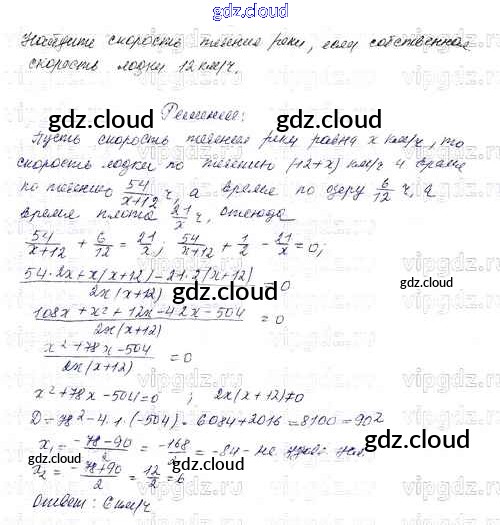 gdz.cloud
Найдите скорость течения реки, если собственная
скорость лодки 12 км/ч.
gdz.cloud
Решение:
Пусть скорость течения реки равна x км/ч, то
скорость лодки по течению (12+x) км/ч и время
по течению 54/(x+12) ч, а время по озеру 6/12 ч, а
время плота 21/x ч, откуда
54/(x+12) + 6/12 = 21/x; 54/(x+12) + 1/2 - 21/x = 0;
(54·2x+x(x+12)-21·2(x+12))/(2x(x+12)) = 0
gdz.cloud
(108x+x²+12x-42x-504)/(2x(x+12)) = 0
(x²+78x-504)/(2x(x+12)) = 0
x²+78x-504=0 ; 2x(x+12)≠0
D=78²-4·1·(-504)=6084+2016=8100=90²
x₁=(-78-90)/2=-168/2=-84-не
x₂=(-78+90)/2=12/2=6
Ответ: 6 км/ч
gdz.cloud